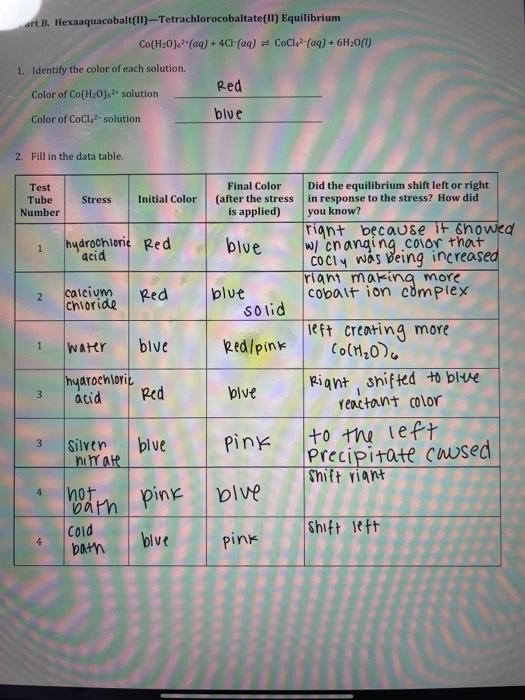 art B. Hexaaquacobalt(II)—Tetrachlorocobaltate(II) Equilibrium
Co(H₂O)₆²⁺(aq) + 4Cl⁻(aq) ⇌ CoCl₄²⁻(aq) + 6H₂O(l)
1. Identify the color of each solution.
Color of Co(H₂O)₆²⁺ solution Red
Color of CoCl₄²⁻ solution blue
2. Fill in the data table.
Test Tube Number
Stress
Initial Color
Final Color (after the stress is applied)
Did the equilibrium shift left or right in response to the stress? How did you know?
1 hydrochloric acid Red blue right because it showed w/ changing color that COCl4 was being increased
2 calcium chloride Red blue solid right making more cobalt ion complex
1 water blue Red/pink left creating more Co(H₂O)₆
3 hydrochloric acid Red blue Right, shifted to blue reactant color
3 Silver nitrate blue pink to the left Precipitate caused
4 hot bath pink blue Shift right
4 cold bath blue pink Shift left